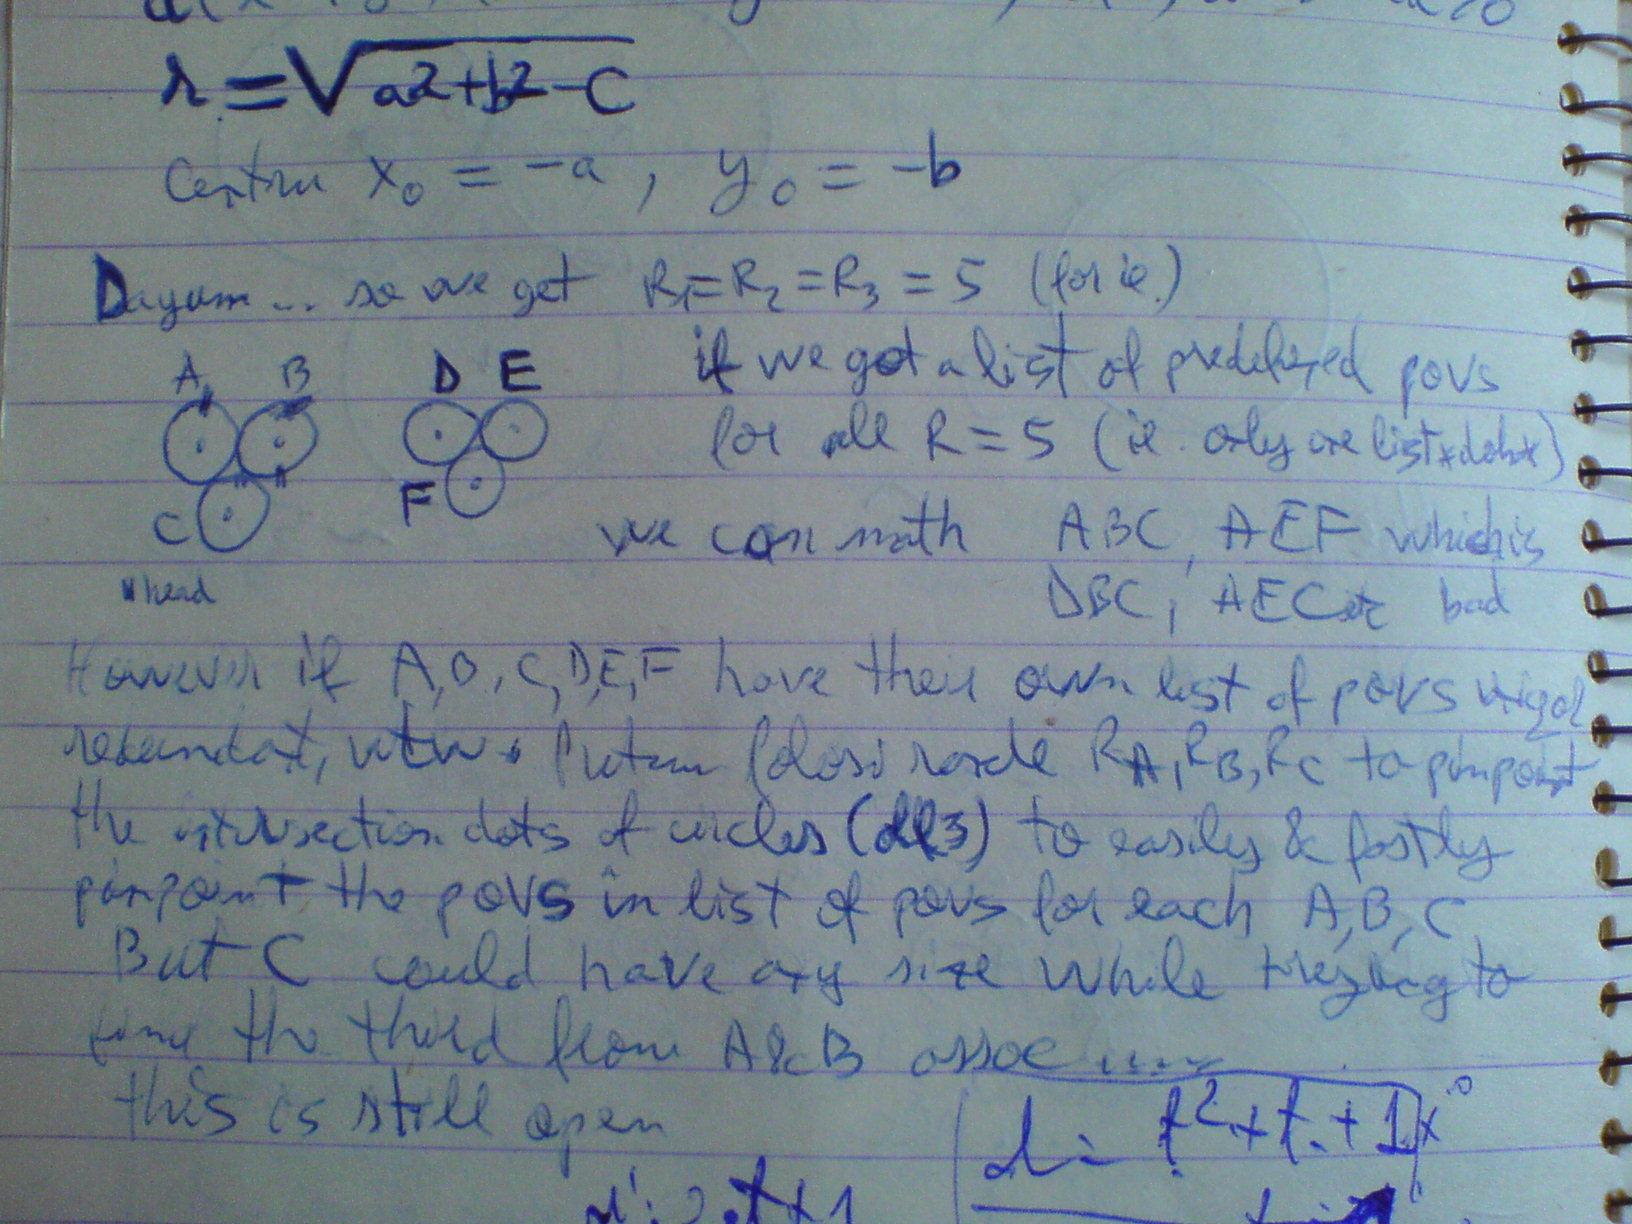 r = √a2+b2-C
Centru x₀ = -a, y₀ = -b
Dayum... so we get R₁=R₂=R₃ = 5 (for ie.)
A B D E if we got a list of predefined povs
for all R = 5 (ie. only one list
C F we can math ABC, AEF which is
head DBC, AEC etc bad
However if A,B,C,D,E,F have their own list of povs
Putem folosi razele RA, RB, RC to pinpoint
the intersection dots of circles (all 3) to easily & fastly
pinpoint the povs in list of povs for each A, B, C
But C could have any size while trying to
find the third from A&B assoc ....
this is still open
d = t² + t + 1